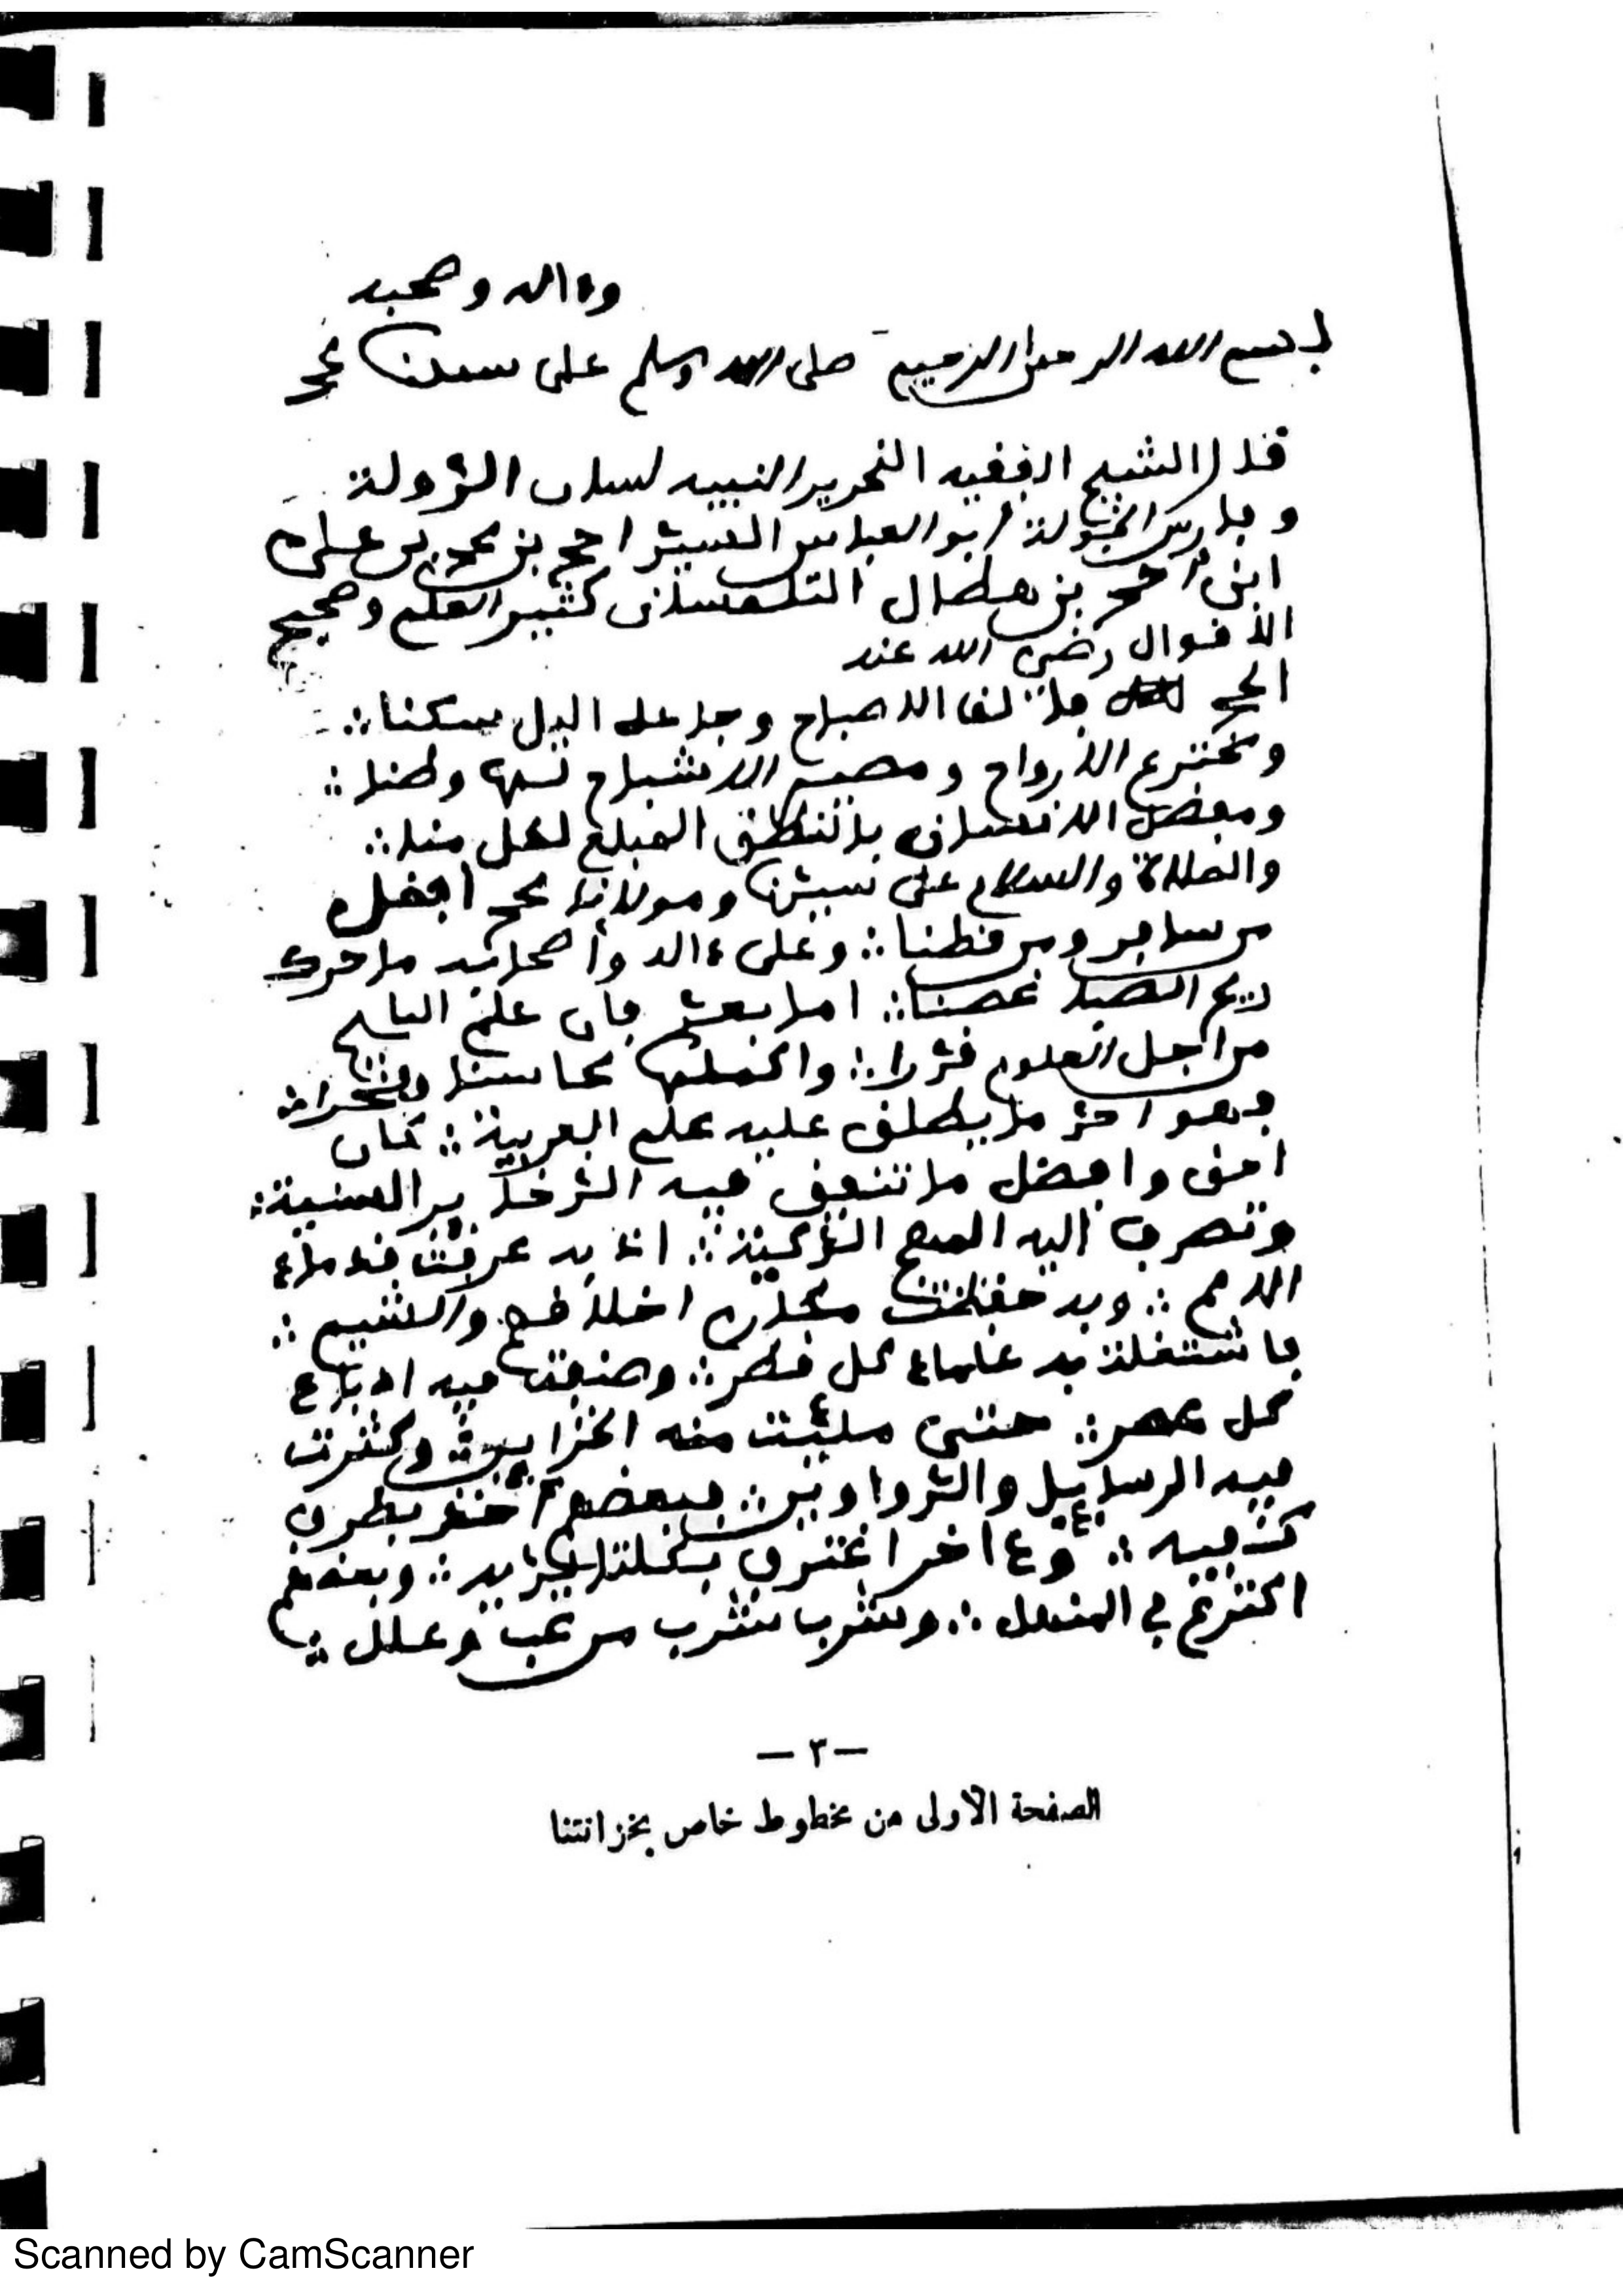 وءاله وصحبه
بسم الله الرحمن الرحيم صلى الله وسلم على سيدنا محمد
قال الشيخ الفقيه النحرير النبيه لسان الدولة
وفارس الجولة أبو العباس السيد احمد بن محمد بن علي
ابن أحمد بن هطال التلمساني كثير العلم وصحيح
الاقوال رضي الله عنه
الحمد لله فالق الاصباح وجاعل اليل سكنا
ومخترع الارواح ومصير الاشباح لها وطنا
ومفضل الانسان بالنطق المبلغ لكل منا
والصلاة والسلام على سيدنا ومولانا محمد أفضل
من سافر ومن قطنا وعلى ءاله وأصحابه ما حرك
ريح الصبا غصنا اما بعد فان علم التاريخ
من اجل العلوم قدرا واكملها محاسنا
فهو احد ما يطلق عليه علم العربية كان
احق وافضل ما تنفق فيه الذخاير السنية
وتصرف اليه المهج الزكية اذ به عرفت قدماء
الامم وبه حفظت مكارم اخلاقهم والشيم
فاشتغلت به علماء كل قطر وصنفت فيه ادباء
كل عصر حتى مليت منه الخزاين وكثرت
فيه الرسايل والدواوين فبعضهم أخذ بطرف
كتفيه وءاخر اغترف بكلتا يديه وبعضهم
اكترع في المنهل وشرب من عب وعلل
— ٣ —
الصفحة الأولى من مخطوط خاص بخزانتنا
Scanned by CamScanner